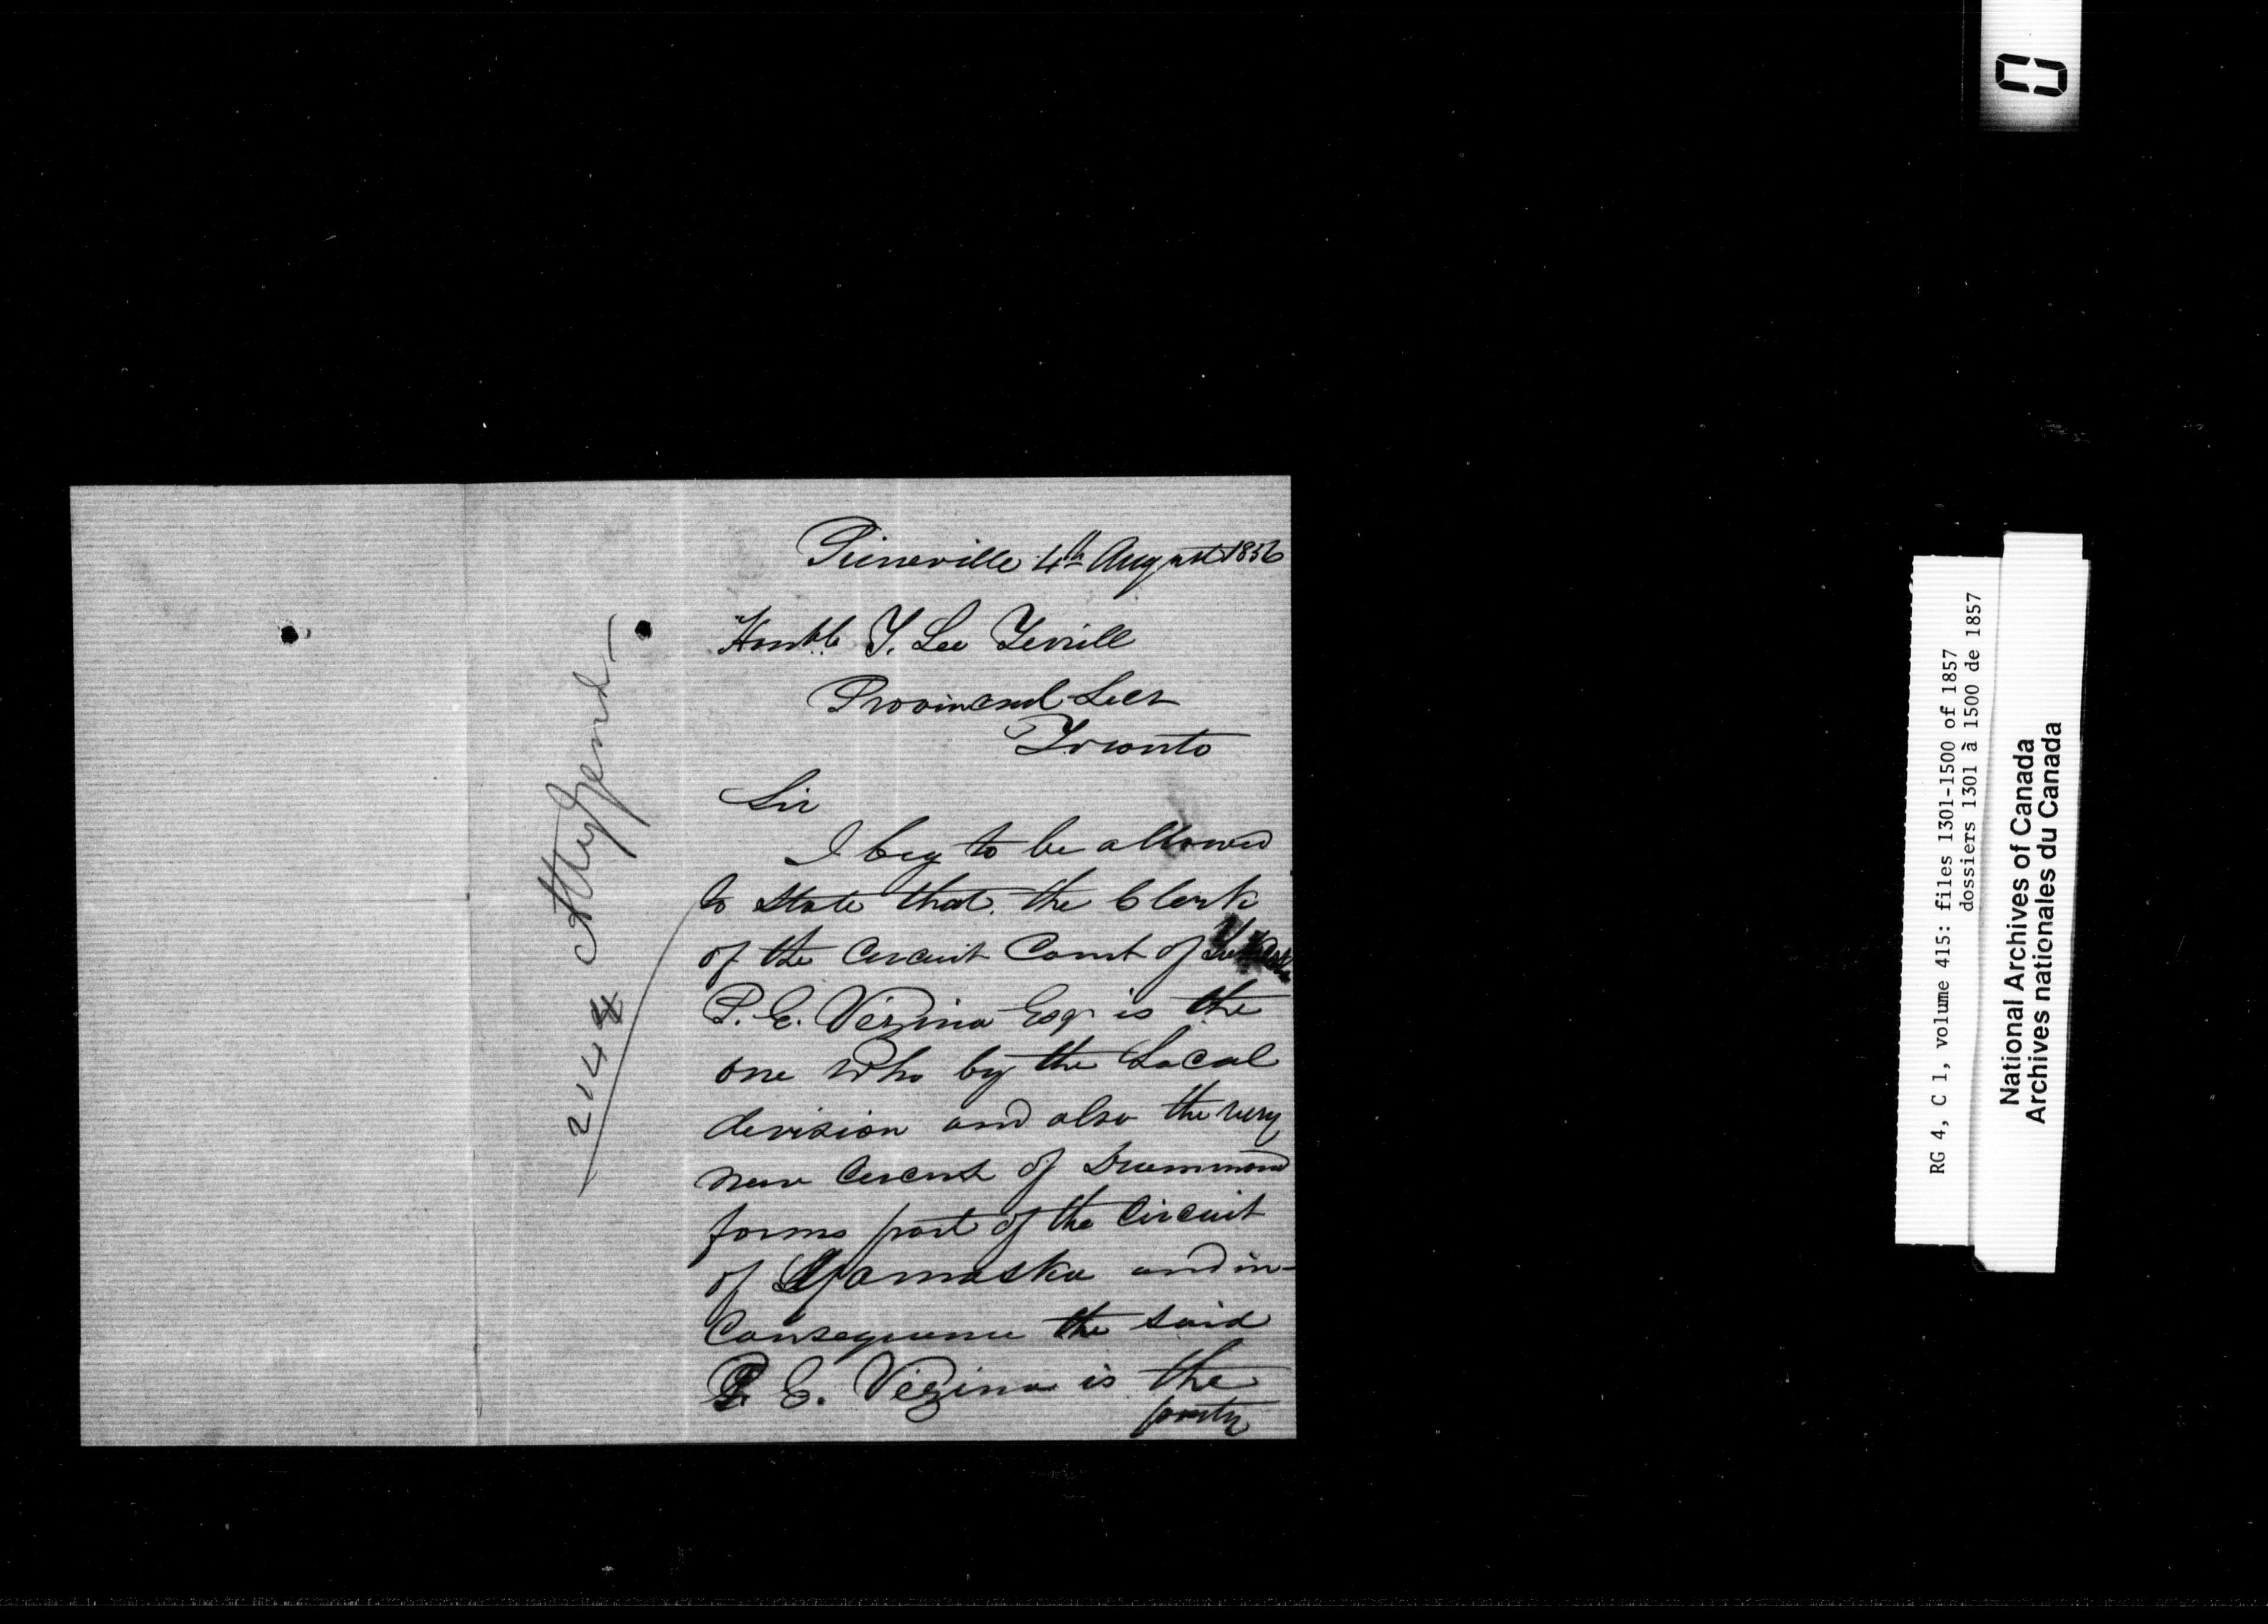 Princeville 4th August 1856
Honble T. Lee Terrill
Provincial Secr
Toronto
Sir
I beg to be allowed
to state that the Clerk
of the Circuit Court of
P. E. Vézina Esqr is the
one who by the Local
devision and also the very
new Circuit of Drummond
forms part of the Circuit
of Yamaska and in-
Consequence the said
P. E. Vézina is the
party
Atty Genl
2144
RG 4, C 1, volume 415: files 1301-1500 of 1857
dossiers 1301 à 1500 de 1857
National Archives of Canada
Archives nationales du Canada
0